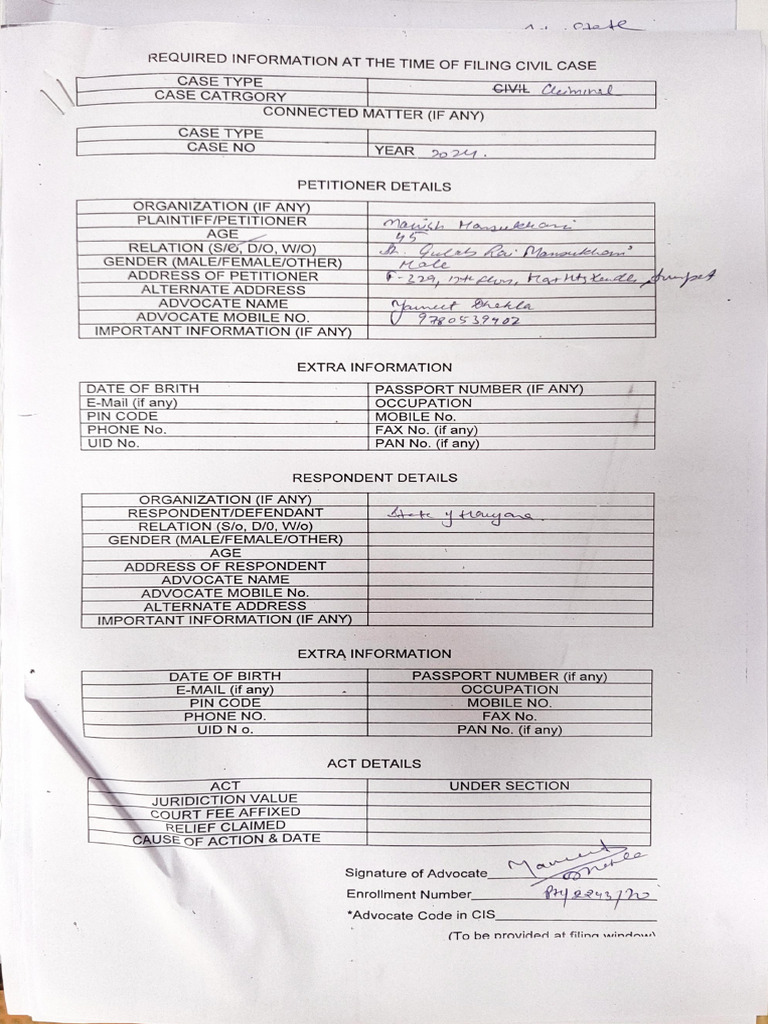 State
REQUIRED INFORMATION AT THE TIME OF FILING CIVIL CASE
CASE TYPE CIVIL Criminal
CASE CATRGORY
CONNECTED MATTER (IF ANY)
CASE TYPE
CASE NO YEAR 2024.
PETITIONER DETAILS
ORGANIZATION (IF ANY)
PLAINTIFF/PETITIONER Manish Mansukhani
AGE 45
RELATION (S/O, D/O, W/O) Gulab Rai Mansukhani
GENDER (MALE/FEMALE/OTHER) Male
ADDRESS OF PETITIONER F-329,
ALTERNATE ADDRESS
ADVOCATE NAME
ADVOCATE MOBILE NO. 9780539402
IMPORTANT INFORMATION (IF ANY)
EXTRA INFORMATION
DATE OF BRITH PASSPORT NUMBER (IF ANY)
E-Mail (if any) OCCUPATION
PIN CODE MOBILE No.
PHONE No. FAX No. (if any)
UID No. PAN No. (if any)
RESPONDENT DETAILS
ORGANIZATION (IF ANY)
RESPONDENT/DEFENDANT State of Haryana.
RELATION (S/o, D/0, W/o)
GENDER (MALE/FEMALE/OTHER)
AGE
ADDRESS OF RESPONDENT
ADVOCATE NAME
ADVOCATE MOBILE No.
ALTERNATE ADDRESS
IMPORTANT INFORMATION (IF ANY)
EXTRA INFORMATION
DATE OF BIRTH PASSPORT NUMBER (if any)
E-MAIL (if any) OCCUPATION
PIN CODE MOBILE NO.
PHONE NO. FAX No.
UID N o. PAN No. (if any)
ACT DETAILS
ACT UNDER SECTION
JURIDICTION VALUE
COURT FEE AFFIXED
RELIEF CLAIMED
CAUSE OF ACTION & DATE
Signature of Advocate
Enrollment Number
*Advocate Code in CIS
(To be provided at filing window)